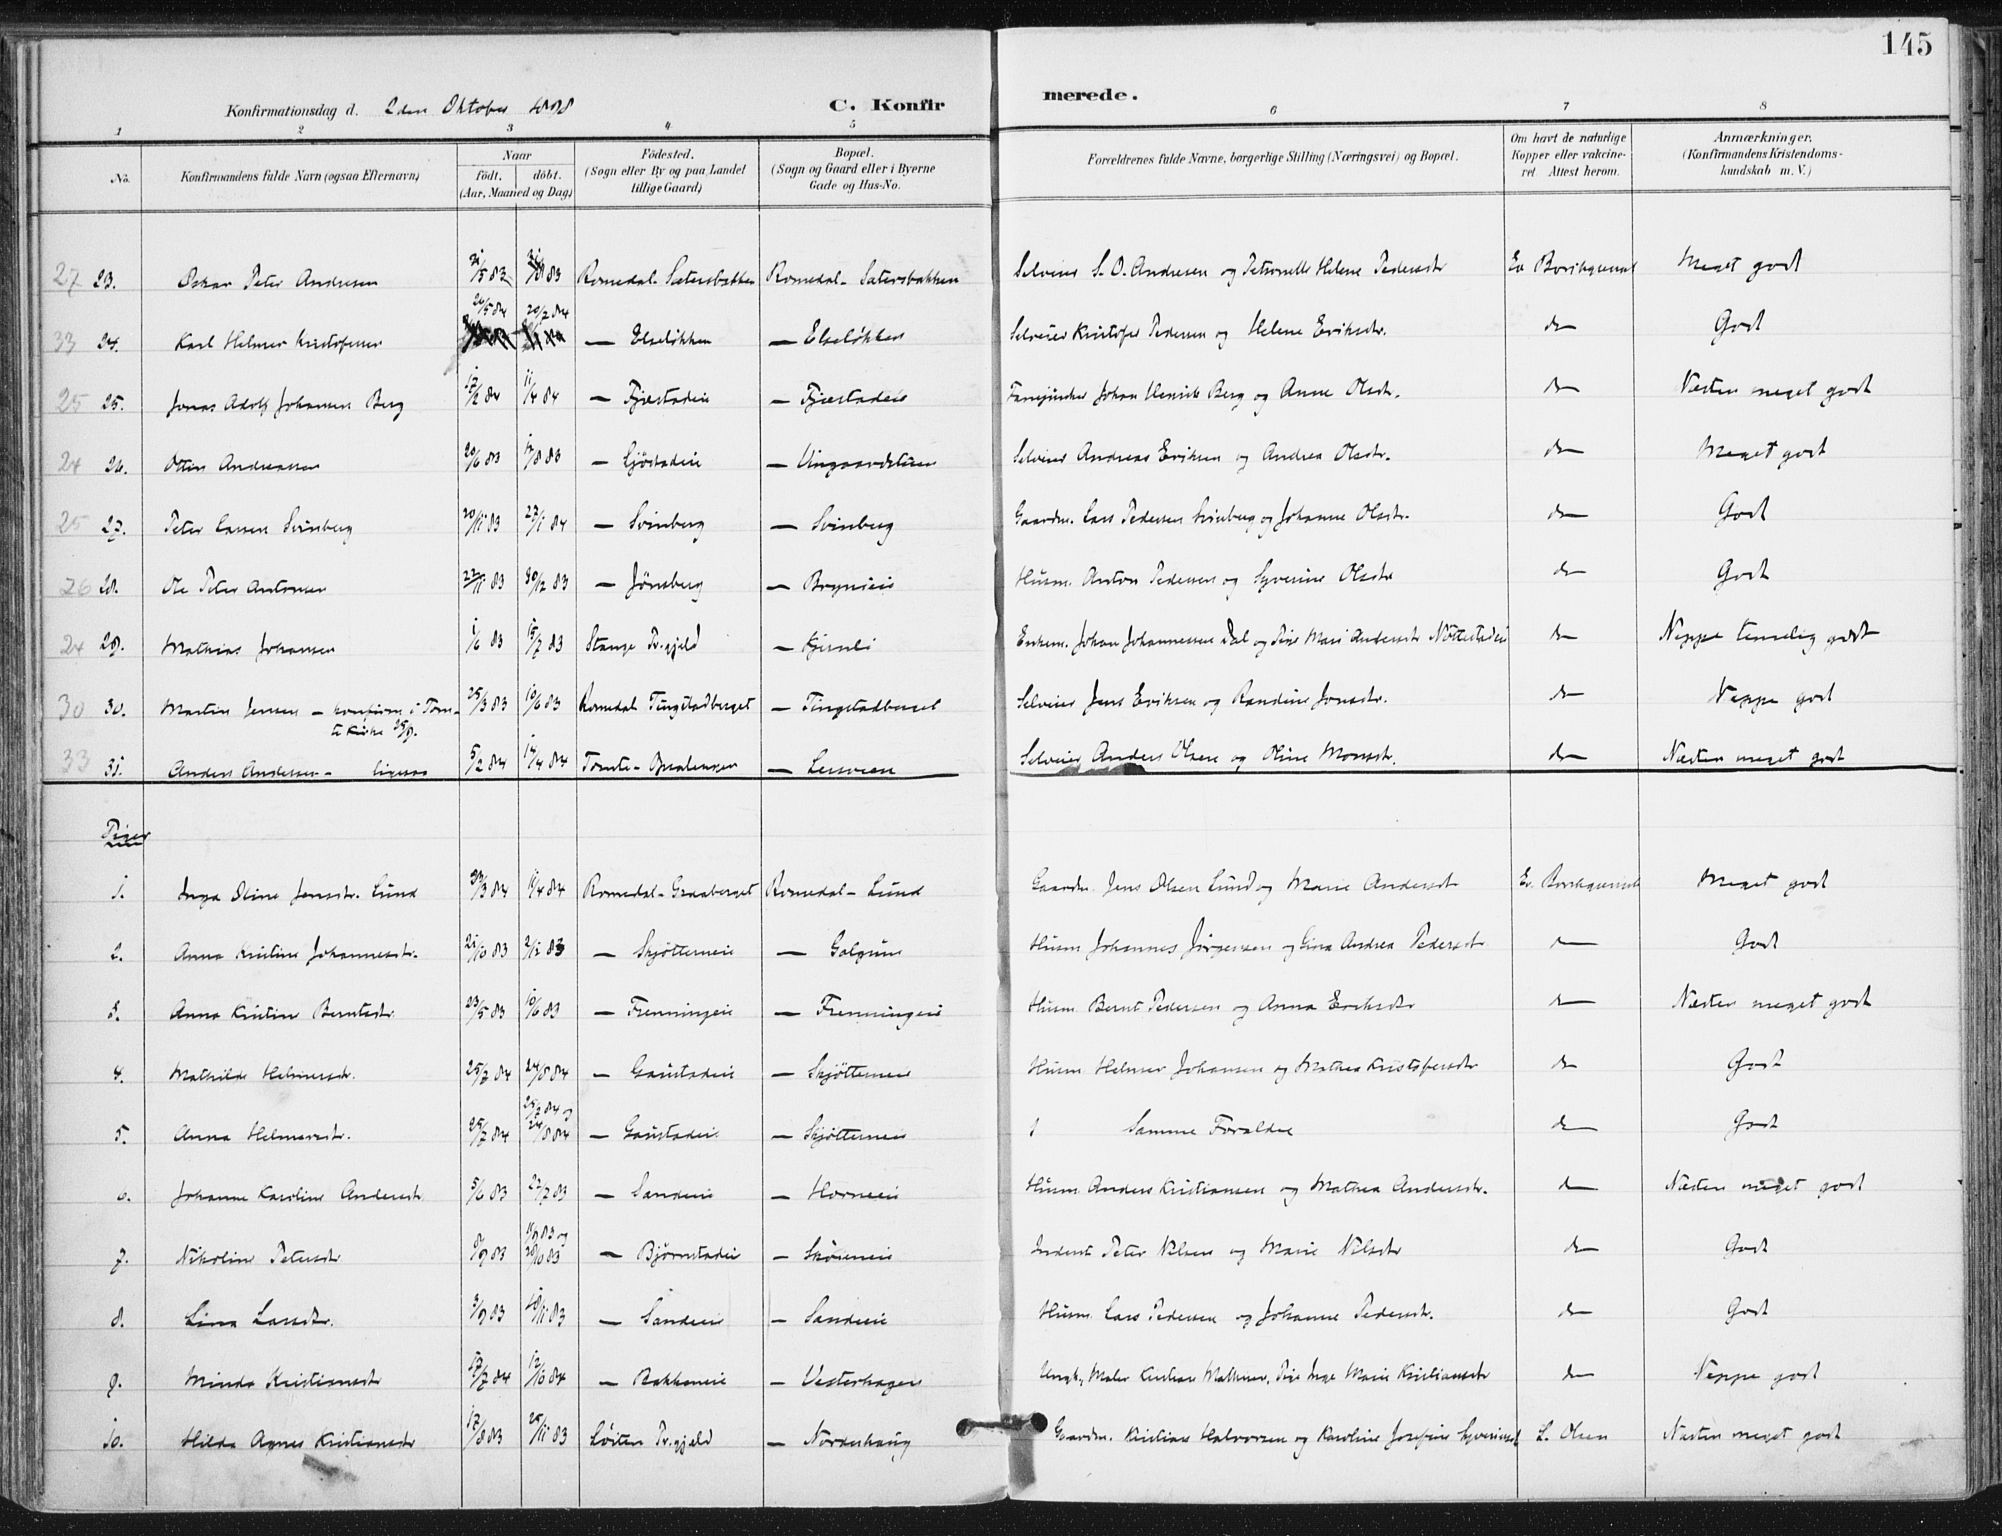 145
Konfirmationsdag d. 2den Oktober 1898 C. Konfir merede.
1 2 3 4 5 6 7 8
No. Konfirmandens fulde Navn (ogsaa Efternavn) Naar født, døbt. (Aar, Maaned og Dag) Fødested. (Sogn eller By og paa Landet tillige Gaard) Bopæl. (Sogn og Gaard eller i Byerne Gade og Hus-No. Forældrenes fulde Navne, borgerlige Stilling (Næringsvei) og Bopæl. Om havt de naturlige Kopper eller vakcineret. Attest herom. Anmærkninger. (Konfirmandens Kristendomskundskab m. V.)
27 23. Oskar Peter Andresen 31/5 83 83 Romedal - Sætersbakken Romedal - Sætersbakken Selveier S. O. Andresen og Petronelle Helene Pedersdtr Meget godt
33 24. Karl Helmer Kristofersen 84 20/7 84 — Elseløkken — Elseløkken Selveier Kristofer Pedersen og Helene Eriksdtr. do Godt
25 25. Jonas Adolf Johansen Berg 17/2 84 11/4 84 — Fjæstadeie — Fjæstadeie Johan Henrik Berg og Anne Olsdtr. do Næsten meget godt
24 26. Andreassen 20/6 83 12/8 83 — Gjøstadeie — Selveier Andreas Eriksen og Andrea Olsdtr. do Meget godt
25 27. Peter Larsen Svinberg 20/11 83 27/1 84 — Svinberg — Svinberg Gaardm. Lars Pedersen Svinberg og Johanne Olsdtr. do Godt
26 28. Ole Peter Antonsen 22/11 83 30/12 83 — Jønsberg — Brynieie Husm. Anton Pedersen og Syverine Olsdtr do Godt
24 29. Mathias Johansen 1/6 83 15/7 83 Stange Pr.gjeld — Kjernli Enkem. Johan Johannessen Dal og Pige Mari Andersdtr Nøttestadeie do Neppe temmelig godt
30 30. Martin Jensen — konfirm. i Tomte kirke 25/9. 25/3 83 10/6 83 Romedal Tingstadberget — Tingstadberget Selveier Jens Eriksen og Randine Jonsdtr. do Neppe godt
33 31. Anders Andersen — ligesaa 5/2 84 14/4 84 Tomte - — Selveier Anders Olsen og Oline Monsdtr. do Næsten meget godt
Piger
1. Inga Oline Jensdtr. Lund /3 84 /4 84 Romedal - Graaberget Romedal - Lund Gaardm. Jens Olsen Lund og Marie Andersdtr Meget godt
2. Anna Kristine Johannesdtr. 21/10 83 2/12 83 — Skjøttemeie — Galgum Husm Johannes Jørgensen og Gina Andrea Pedersdtr do Godt
3. Anna Kristine Berntsdtr. 23/5 83 10/6 83 — Frenningeie — Frenningeie Husm Bernt Pedersen og Anna Eriksdtr do Næsten meget godt
4. Mathilde Helmersdtr. 25/7 84 24/8 84 — Gaustadeie — Skjøttemeie Husm Helmer Johansen og Mathea Kristofersdtr do Godt
5. Anna Helmersdtr. 25/7 84 25/7 84 og 24/8 84 — Gaustadeie — Skjøttemeie Samme Forældre do Godt
6. Johanne Karoline Andersdtr 5/6 83 22/7 83 — Sandeie — Horneeie Husm Anders Kristiansen og Mathea Andersdtr. do Næsten meget godt
7. Nikoline Petersdtr 8/9 83 11/9 83 og 28/10 83 — Bjørnstadeie — Inderst Peter Nilsen og Marie Nilsdtr do Godt
8. Lina Larsdtr. 3/9 83 18/11 83 — Sandeie — Sandeie Husm. Lars Pedersen og Johanne Pedersdtr. do Godt
9. Minda Kristiansdtr 17/7 84 12/10 84 — Bakkeneie — Vesterhagen Ungk., Maler Kristian Mathisen, Pige Inge Marie Kristiansdtr do Neppe godt
10. Hilda Agnes Kristiansdtr 17/8 83 25/11 83 Løiten Pr.gjeld — Nordenhaug Gaardm. Kristian Halvorsen og Karoline Josefine Syverinsdtr L. Olsen Næsten meget godt